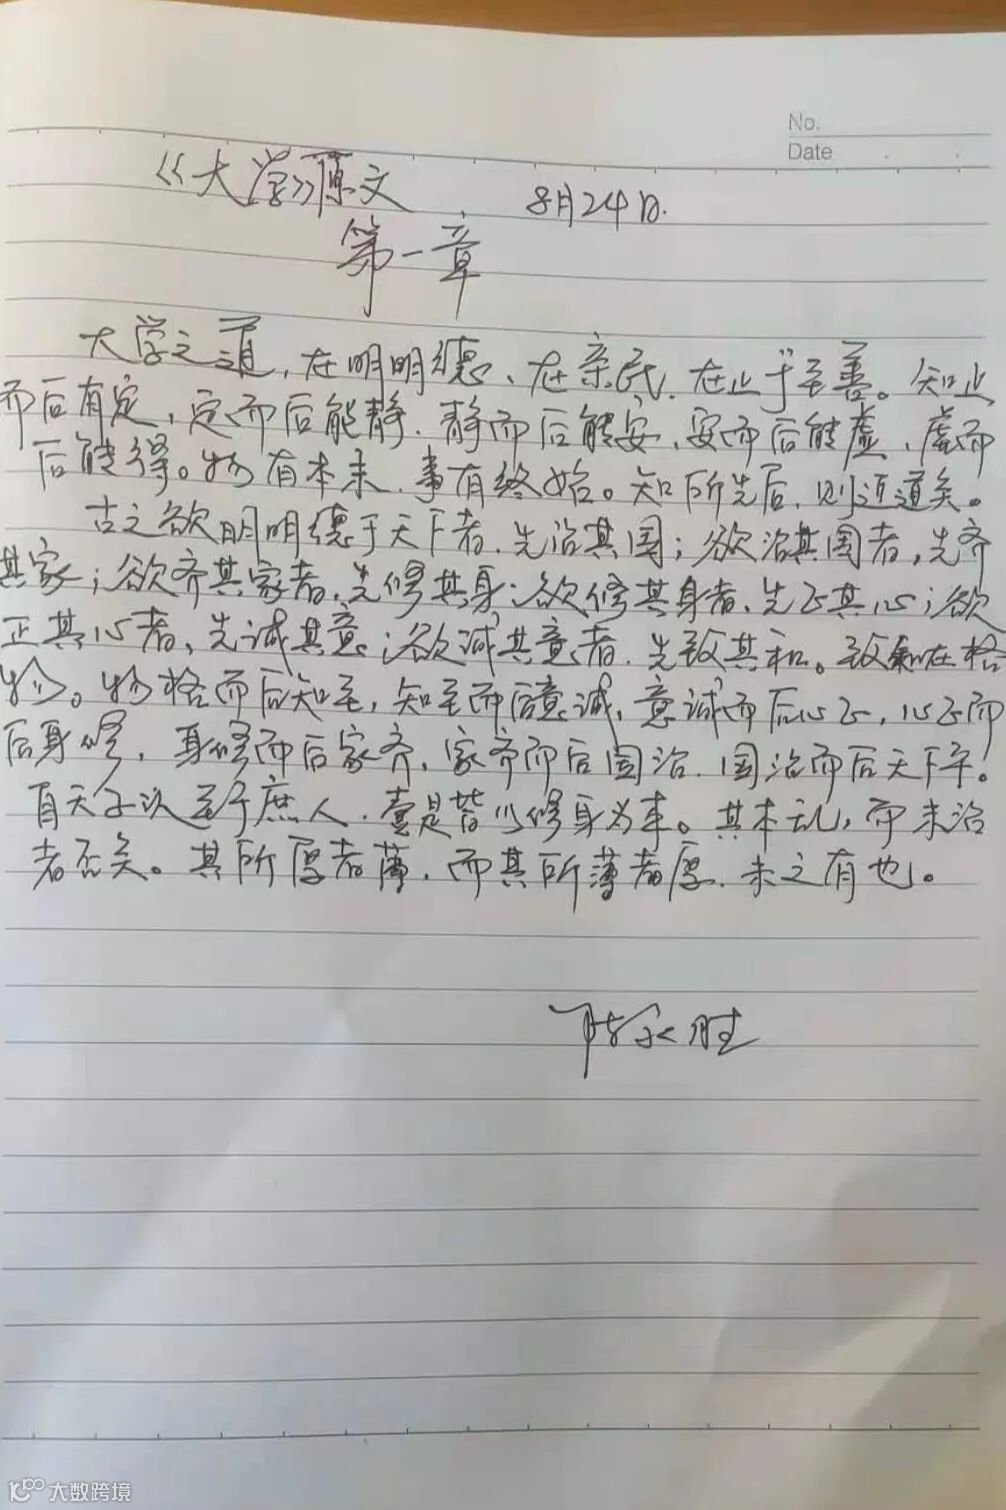 No.
Date
《大学》原文 8月24日.
第一章
大学之道,在明明德、在亲民.在止于至善。知止
而后有定,定而后能静.静而后能安,安而后能虑,虑而
后能得。物有本末.事有终始。知所先后,则近道矣。
古之欲明明德于天下者.先治其国;欲治其国者,先齐
其家;欲齐其家者,先修其身;欲修其身者、先正其心;欲
正其心者,先诚其意;欲诚其意者.先致其知。致知在格
物。物格而后知至,知至而后意诚,意诚而后心正,心正而
后身修,身修而后家齐,家齐而后国治.国治而后天下平。
自天子以至于庶人.壹是皆以修身为本。其本乱,而末治
者否矣。其所厚者薄.而其所薄者厚.未之有也。
陈永胜
大数跨境